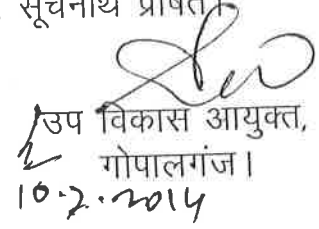 सूचनार्थ प्रेषित।
उप विकास आयुक्त,
गोपालगंज।
10.2.2014